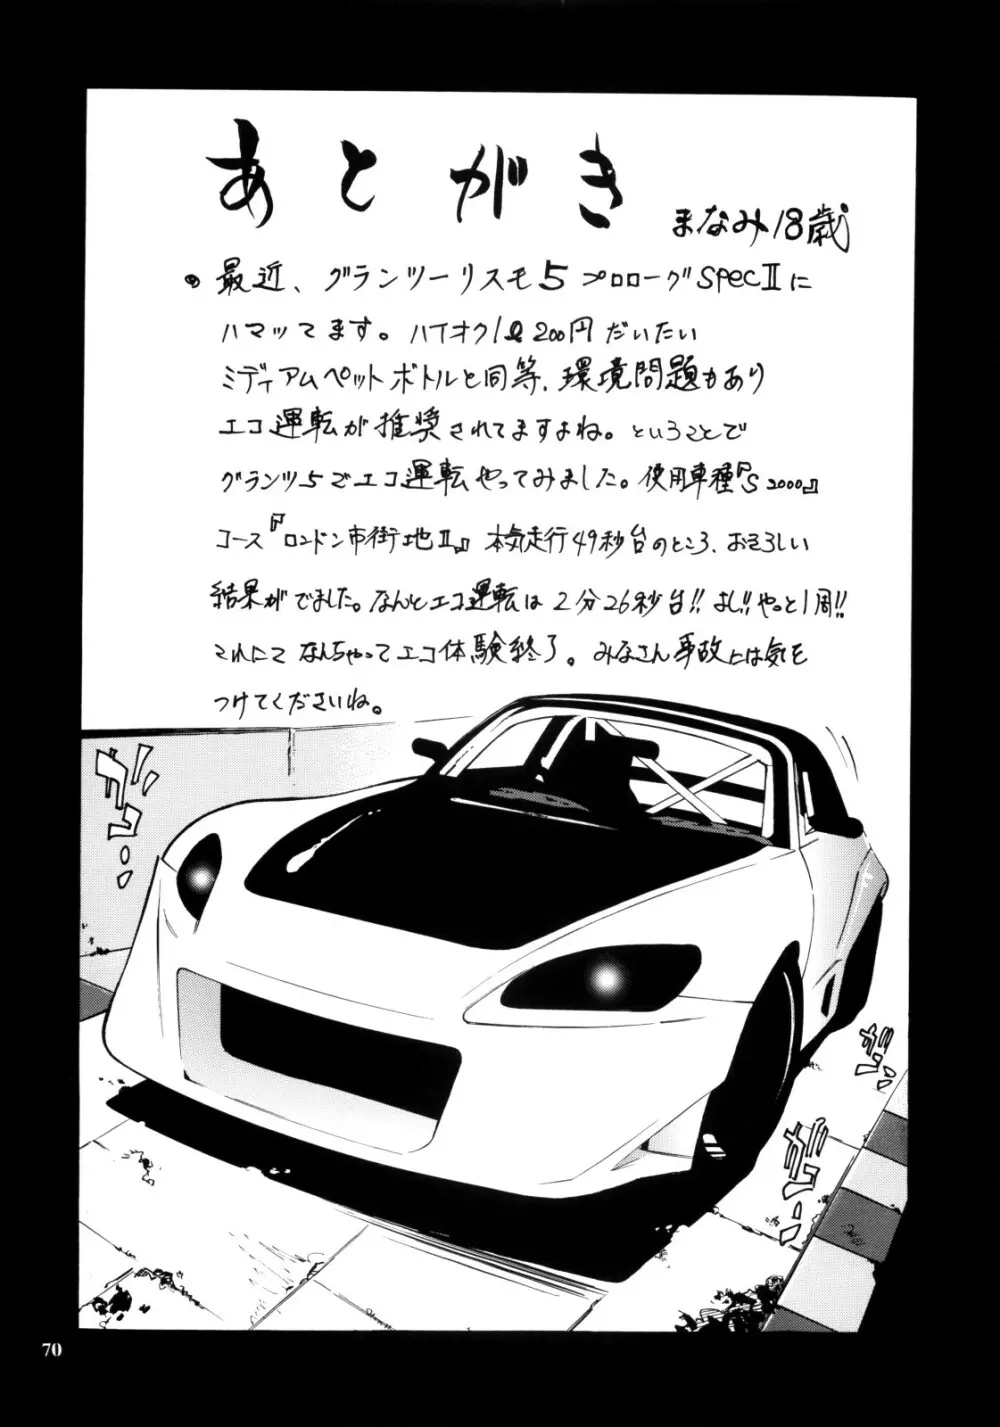 あとがき
まなみ18歳
最近、グランツーリスモ5プロローグSpecⅡに
ハマッてます。ハイオク1ℓ200円だいたい
ミディアムペットボトルと同等、環境問題もあり
エコ運転が推奨されてますよね。ということで
グランツ5でエコ運転やってみました。使用車種『S2000』
コース『ロンドン市街地Ⅱ』本気走行49秒台のところ、おそろしい
結果がでました。なんとエコ運転は2分26秒台!!よし!!やっと1周!!
これにてなんちゃってエコ体験終了。みなさん事故には気を
つけてくださいね。
70